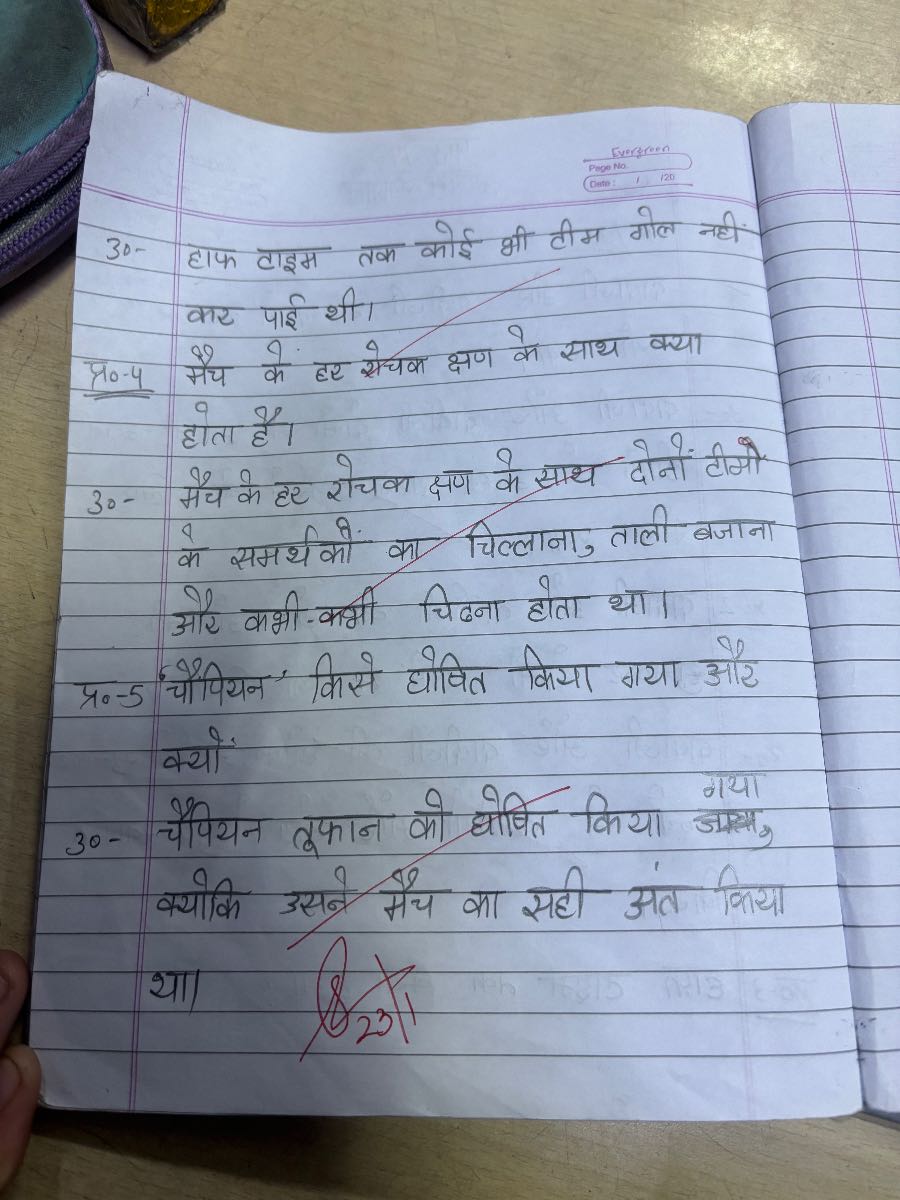 Evergreen
Page No.
Date : / /20
उ०- हाफ टाइम तक कोई भी टीम गोल नही
कर पाई थी।
प्र०-4 मैच के हर रोचक क्षण के साथ क्या
होता है।
उ०- मैच के हर रोचक क्षण के साथ दोनों टीमों
के समर्थकों का चिल्लाना, ताली बजाना
और कभी-कभी चिढना होता था।
प्र०-5 'चौंपियन' किसे घोषित किया गया और
क्यों
गया
उ०- चैंपियन तूफान को घोषित किया
क्योकि उसने मैच का सही अंत किया
था।
23/1